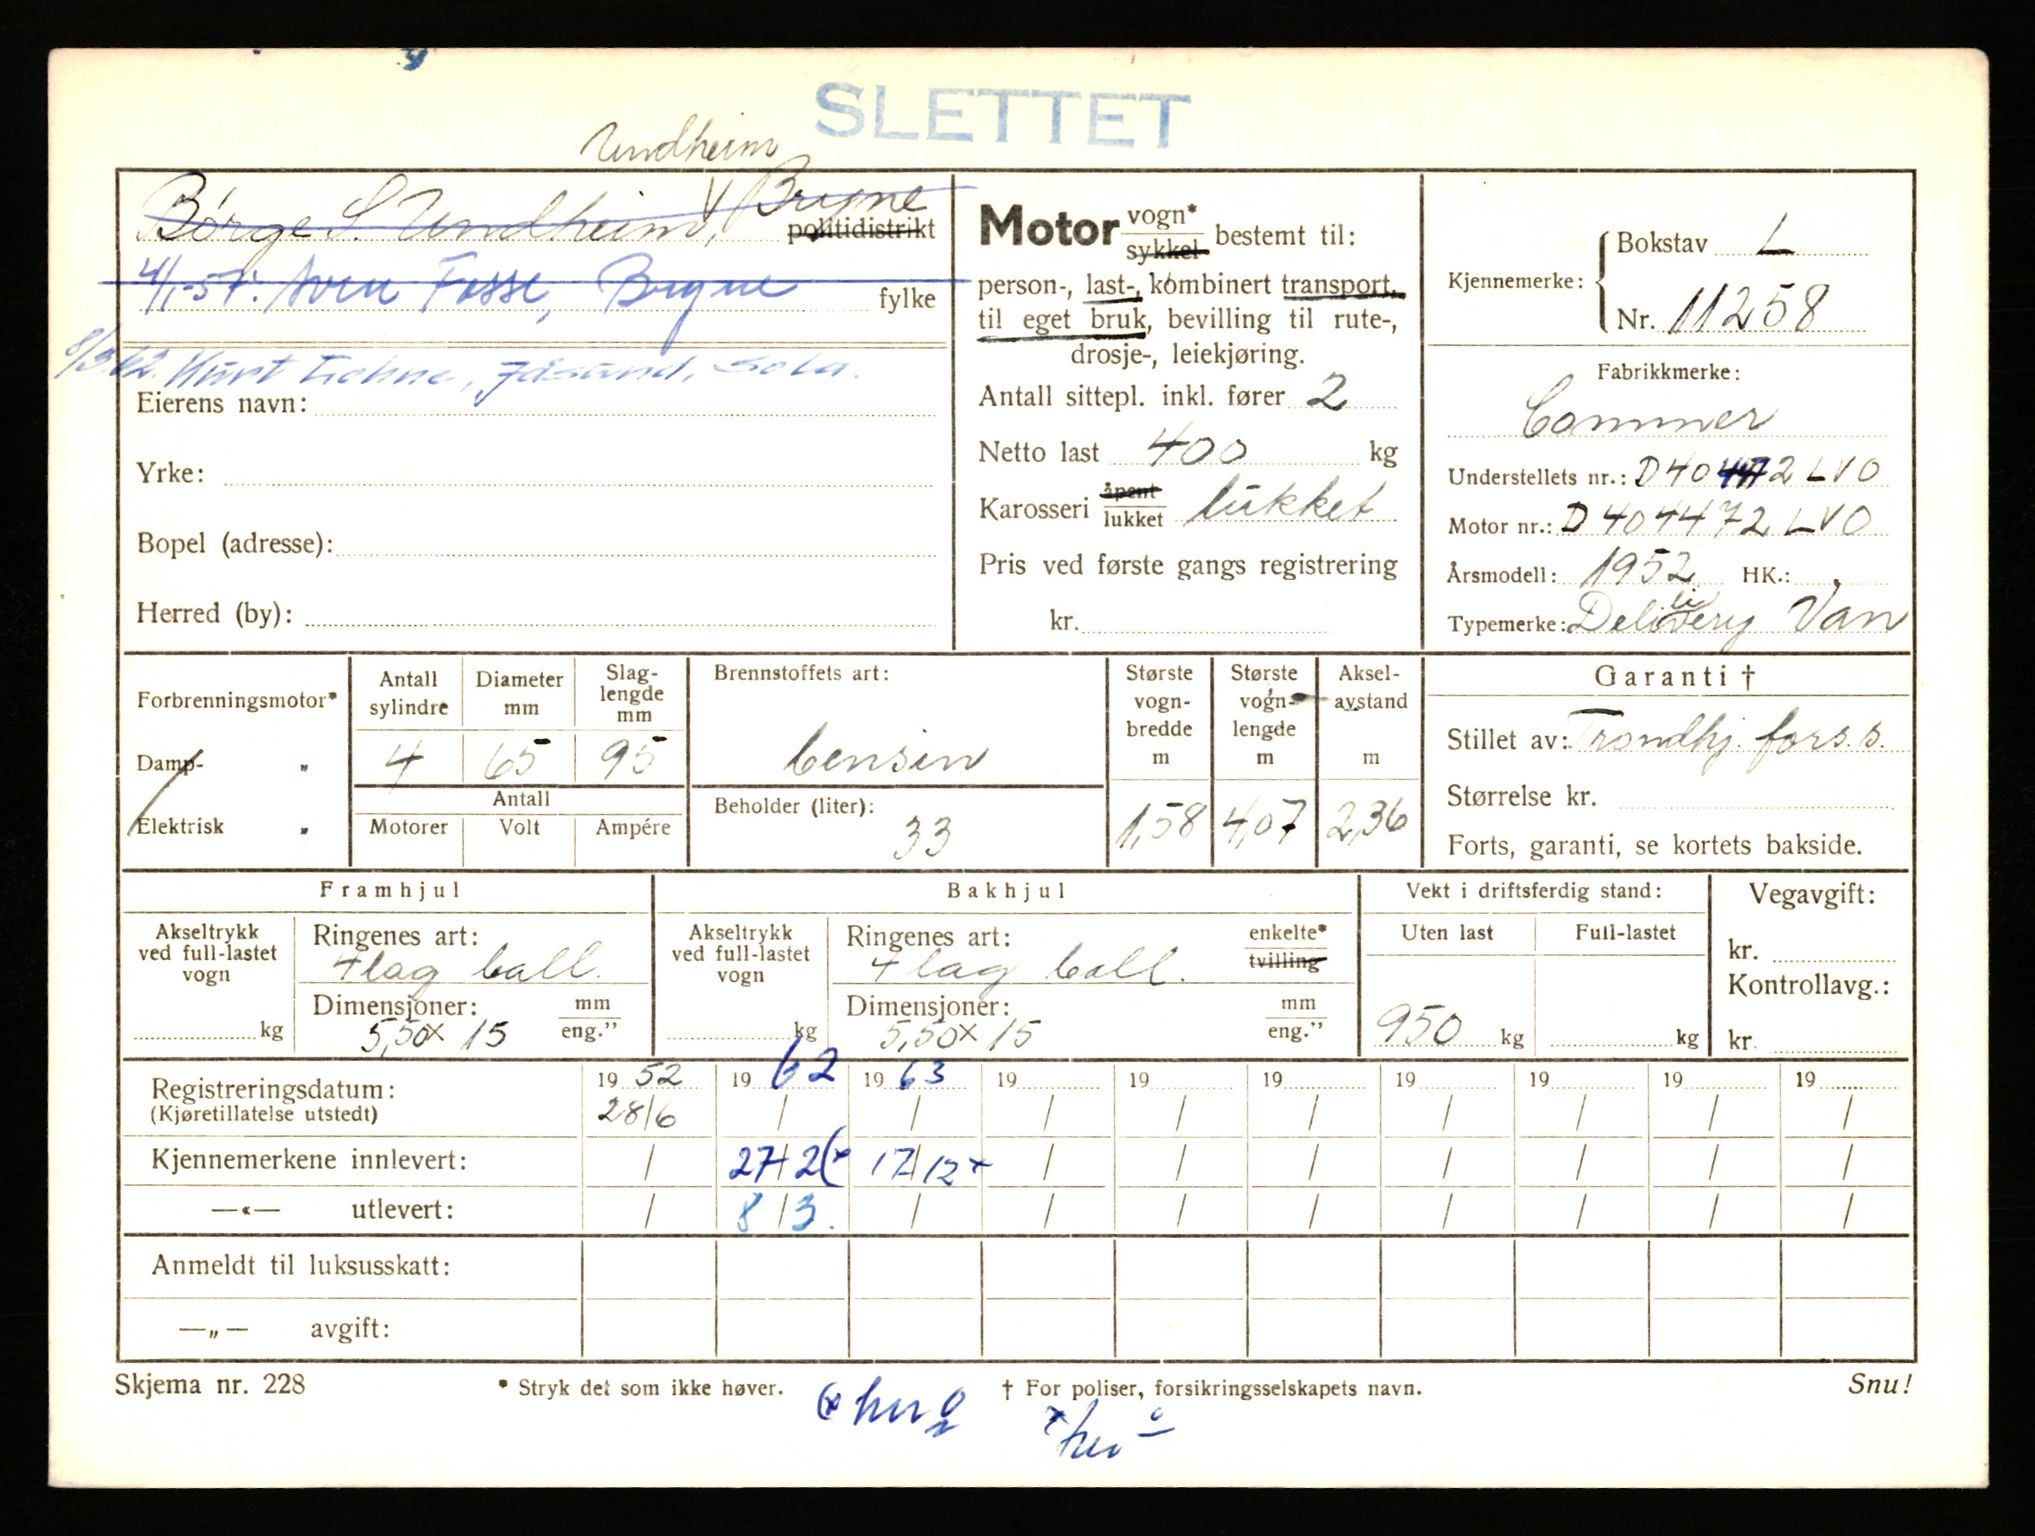 SLETTET
Undheim
Børge S. Undheim, Bryne
politidistrikt
4/1-57. Sven Fosse, Bryne
fylke
8/3.62. Kurt Jåsund, Sola.
Eierens navn:
Yrke:
Bopel (adresse):
Herred (by):
Motor vogn*
sykkel bestemt til:
person-, last-, kombinert transport,
til eget bruk, bevilling til rute-,
drosje-, leiekjøring.
Antall sittepl. inkl. fører 2
Netto last 400 kg
Karosseri åpent
lukket lukket
Pris ved første gangs registrering
kr.
Kjennemerke: Bokstav L
Nr. 11258
Fabrikkmerke:
Commer
Understellets nr.: D404472LVO
Motor nr.: D404472LVO
Årsmodell: 1952 HK.:
Typemerke: Delivery Van
Forbrenningsmotor*
Damp- "
Elektrisk "
Antall sylindre
4
Diameter mm
65
Slag-lengde mm
95
Antall
Motorer Volt Ampére
Brennstoffets art:
bensin
Beholder (liter):
33
Største vogn-bredde m
1,58
Største vogn-lengde m
4,07
Aksel-avstand m
2,36
Garanti †
Stillet av: Trondhj. fors.s.
Størrelse kr.
Forts, garanti, se kortets bakside.
Framhjul
Akseltrykk ved full-lastet vogn
kg
Ringenes art:
4 lag ball.
Dimensjoner: mm
5,50x15 eng."
Bakhjul
Akseltrykk ved full-lastet vogn
kg
Ringenes art: enkelte*
4 lag ball. tvilling
Dimensjoner: mm
5,50x15 eng."
Vekt i driftsferdig stand:
Uten last Full-lastet
950 kg kg
Vegavgift:
kr.
Kontrollavg.:
kr.
Registreringsdatum: 1952 1962 1963 19 19 19 19 19 19 19
(Kjøretillatelse utstedt) 28/6 / / / / / / / / /
Kjennemerkene innlevert: / 27/2(* 17/12* / / / / / / /
—«— utlevert: / 8/3. / / / / / / / /
Anmeldt til luksusskatt:
—„— avgift:
Skjema nr. 228 * Stryk det som ikke høver. † For poliser, forsikringsselskapets navn. Snu!